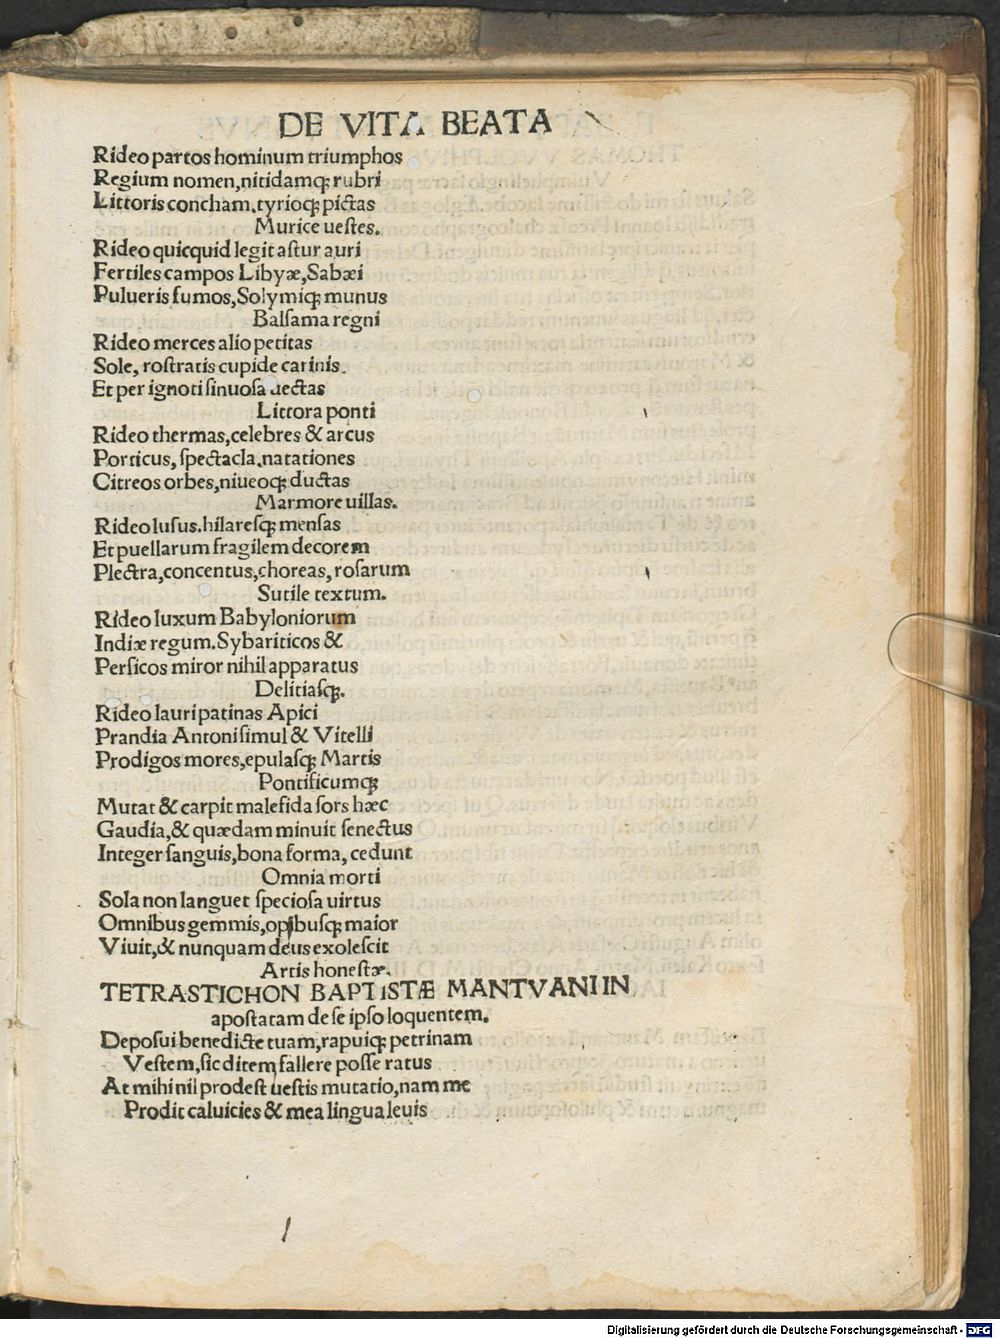 DE VITA BEATA
Rideo partos hominum triumphos
Regium nomen, nitidamqꝫ rubri
Littoris concham, tyrioqꝫ pictas
Murice uestes.
Rideo quicquid legit astur auri
Fertiles campos Libyæ, Sabæi
Pulueris fumos, Solymiqꝫ munus
Balsama regni
Rideo merces alio petitas
Sole, rostratis cupide carinis.
Et per ignoti sinuosa uectas
Littora ponti
Rideo thermas, celebres & arcus
Porticus, spectacla. natationes
Citreos orbes, niueoqꝫ ductas
Marmore uillas.
Rideo lusus. hilaresqꝫ mensas
Et puellarum fragilem decorem
Plectra, concentus, choreas, rosarum
Sutile textum.
Rideo luxum Babyloniorum
Indiæ regum. Sybariticos &
Persicos miror nihil apparatus
Delitiasqꝫ.
Rideo lauri patinas Apici
Prandia Antoni simul & Vitelli
Prodigos mores, epulasqꝫ Martis
Pontificumqꝫ
Mutat & carpit malefida sors hæc
Gaudia, & quædam minuit senectus
Integer sanguis, bona forma, cedunt
Omnia morti
Sola non languet speciosa uirtus
Omnibus gemmis, opibusqꝫ maior
Viuit, & nunquam deus exolescit
Artis honestæ.
TETRASTICHON BAPTISTÆ MANTVANI IN
apostatam de se ipso loquentem.
Deposui benedicte tuam, rapuiqꝫ petrinam
Vestem, sic ditem fallere posse ratus
At mihi nil prodest uestis mutatio, nam me
Prodit caluicies & mea lingua leuis
Digitalisierung gefördert durch die Deutsche Forschungsgemeinschaft - DFG